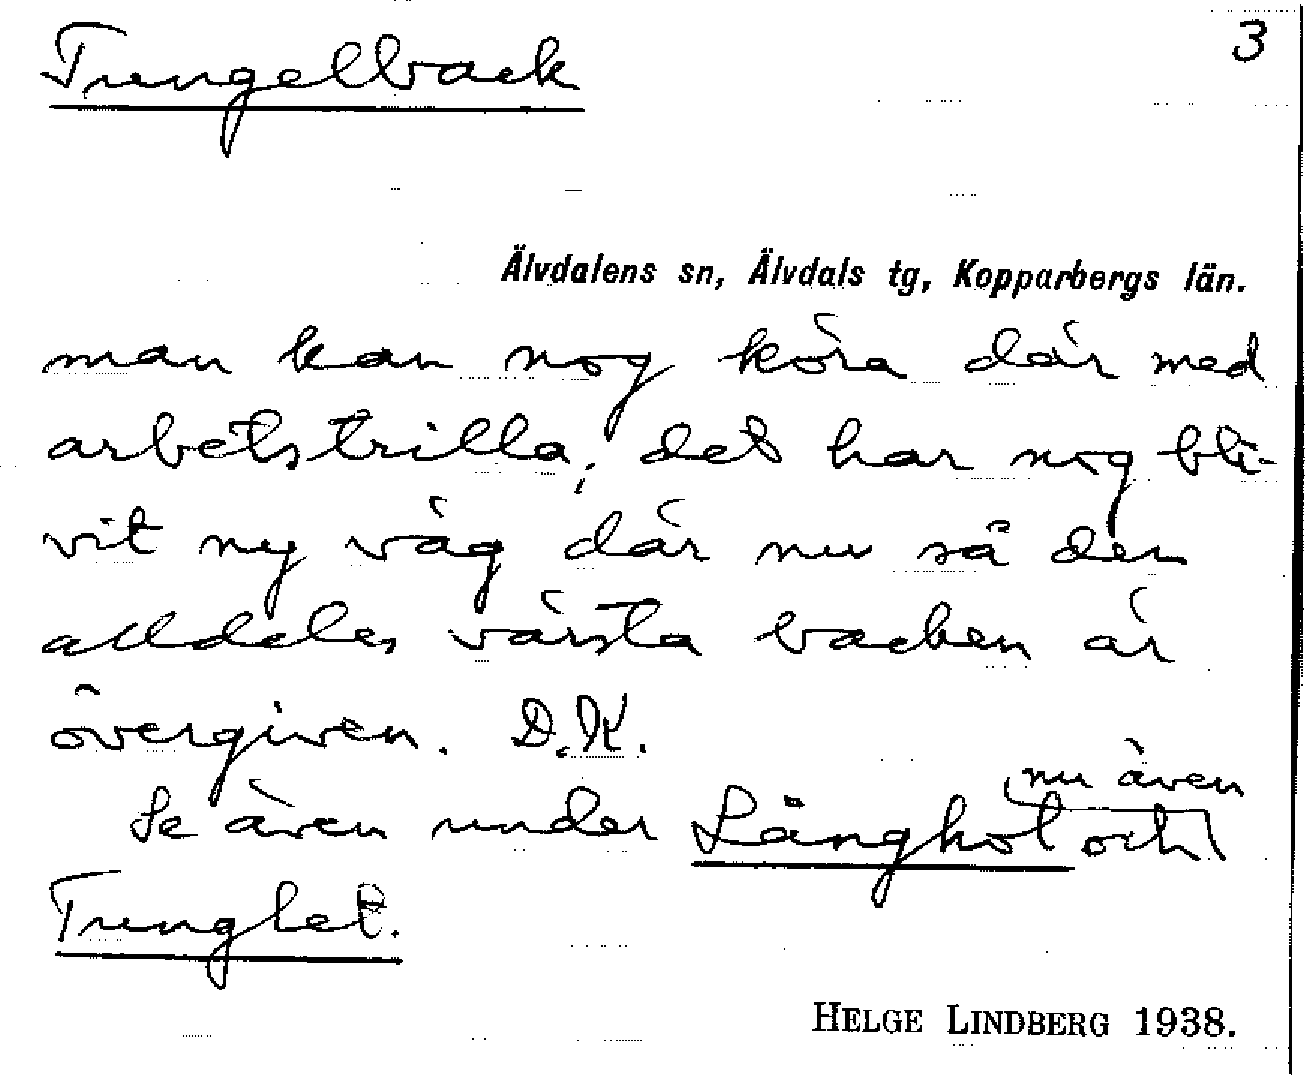 Trungelback
3
Älvdalens sn, Älvdals tg, Kopparbergs län.
man kan nog köra där med
arbetstrilla; det har nog bli-
vit ny väg där nu så den
alldeles värsta backen är
övergiven. D.K.
nu även
Se även under Långhöt och
Trunglet.
HELGE LINDBERG 1938.